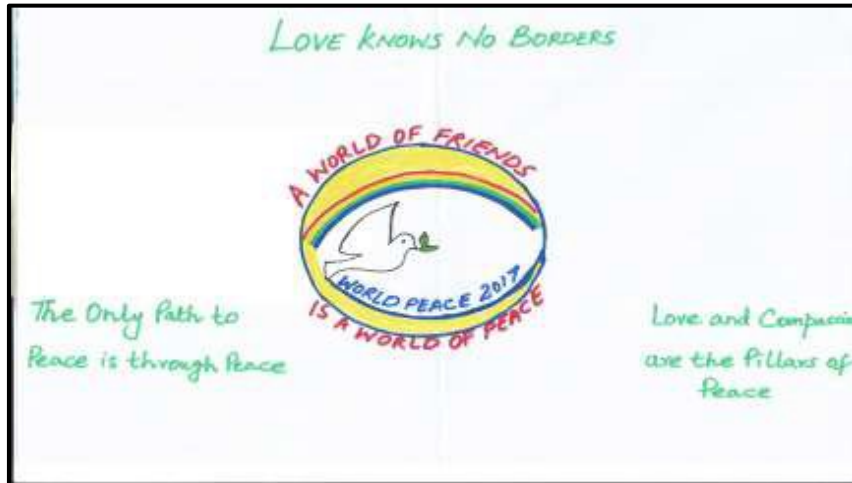 LOVE KNOWS NO BORDERS
A WORLD OF FRIENDS
WORLD PEACE 2017
IS A WORLD OF PEACE
The Only Path to
Peace is through Peace
Love and Compassio
are the Pillars of
Peace